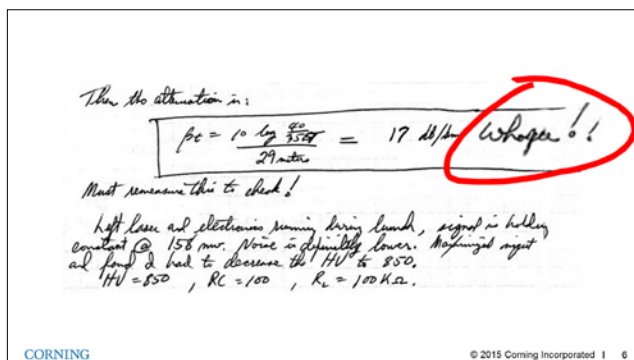 Then the attenuation is:
βt = 10 log 40/35 / 29 meters = 17 db/km Whopee!!
Must remeasure this to check!
Left laser and electronics running during lunch, signal is holding
constant @ 158 mv. Noise is definitely lower. Maximized input
and found I had to decrease the HV to 850.
HV = 850, RC = 100, RL = 100KΩ.
CORNING
© 2015 Corning Incorporated | 6